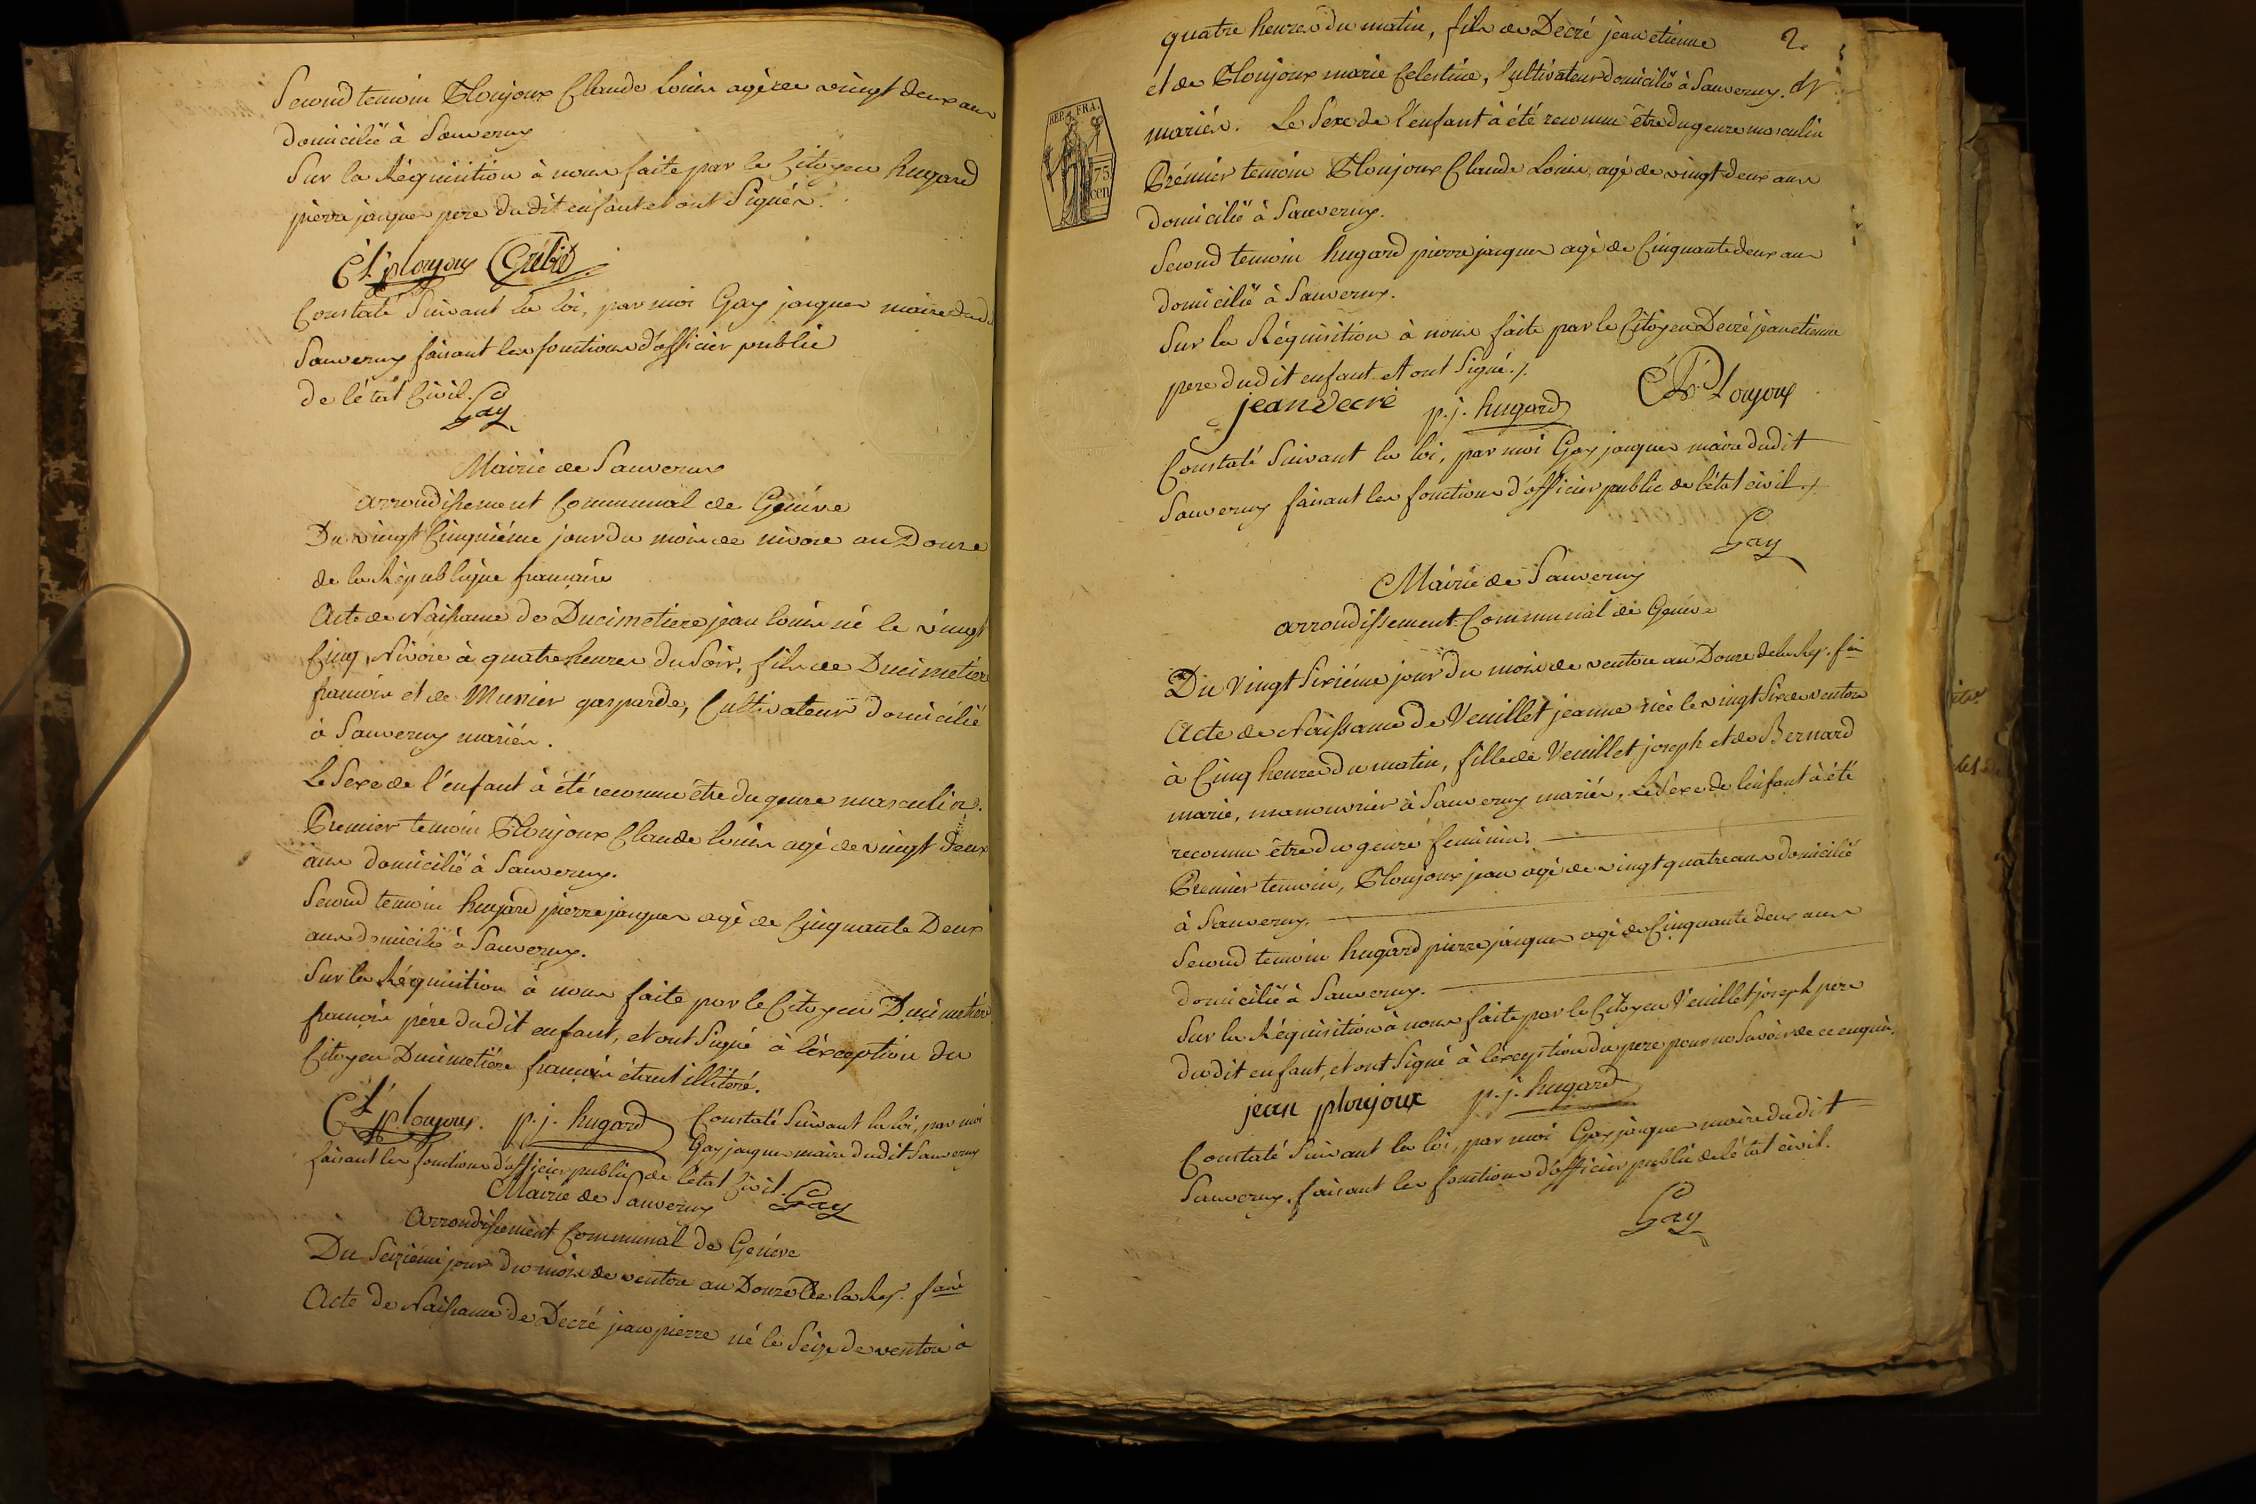 Second temoin Ploujoux Claude Louis agé de vingt deux ans
domicilié à Sauverny
Sur la Réquisition à nous faite par le Citoyen hugard
pierre jacques pere dudit enfant et ont Signés.
Cl. ploujoux
Constaté Suivant la loi, par moi Gay jacques maire dudt
Sauverny faisant les fonctions d'officier public
de l'état Civil.
Gay
Mairie de Sauverny
arrondissement Communal de Genève
Du vingt Cinquiéme jour du mois de nivose an Douze
de la République francaise
Acte de Naissance de Ducimetiere jean louis né le vingt
Cinq Nivose à quatre heures du Soir, fils de Ducimetiere
francois et de Munier gasparde, Cultivateur domicilié
à Sauverny mariés.
Le Sexe de l'enfant à été reconnu être du genre masculin.
Premier temoin Ploujoux Claude louis agé de vingt deux
ans domicilié à Sauverny.
Second temoin hugard pierre jacques agé de Cinquante Deux
ans domicilié à Sauverny.
Sur la Réquisition à nous faite par le Citoyen Ducimetiere
francois père dudit enfant, et ont Signé à l'éxception du
Citoyen Ducimetiére francois étant illiteré.
Cl. ploujoux. p. j. hugard Constaté Suivant la loi, par moi
Gay jacques maire dudit Sauverny
faisant les fonctions d'officier public de l'état Civil. Gay
Mairie de Sauverny
Arrondissement Communal de Genéve
Du Seiziéme jour du mois de ventose an Douze de la Rep. fane
Acte de Naissance de Decré jean pierre né le Seize de ventose à
2.
quatre heures du matin, fils de Decré jean etienne
et de Ploujoux marie Celestine, Cultivateur domicilié à Sauverny.
mariés. Le Sexe de l'enfant à été reconnu être du genre masculin
REP. FRA.
75
cen
Prémier temoin Ploujoux Claude Louis, agé de vingt deux ans
domicilié à Sauverny.
Second temoin hugard pierre jacques agé de Cinquante deux ans
domicilié à Sauverny.
Sur la Réquisition à nous faite par le Citoyen Decré jean etienne
pere dudit enfant et ont Signé.
jean decré p. j. hugard Cl. Ploujoux
Constaté Suivant la loi, par moi Gay jacques maire dudit
Sauverny faisant les fonctions d'officier public de l'état civil.
Gay
Mairie de Sauverny
arrondissement Communal de Genéve
Du Vingt Sixiéme jour du mois de ventose an Douze de la Rep. fse
Acte de Naissance de Veuillet jeanne née le vingt Six de ventose
à Cinq heures du matin, fille de Veuillet joseph et de Bernard
marie, manouvrier à Sauverny mariés, Le Sexe de l'enfant à été
reconnu être du genre feminin.
Premier temoin, Ploujoux jean agé de vingt quatre ans domicilié
à Sauverny.
Second temoin hugard pierre jacques agé de Cinquante deux ans
domicilié à Sauverny.
Sur la Réquisition à nous faite par le Citoyen Veuillet joseph pere
dudit enfant, et ont Signé à l'éxception du pere pour ne Savoir de ce enquis.
jean ploujoux p. j. hugard
Constaté Suivant la loi, par moi Gay jacques maire dudit
Sauverny. faisant les fonctions d'officier public de l'état civil.
Gay